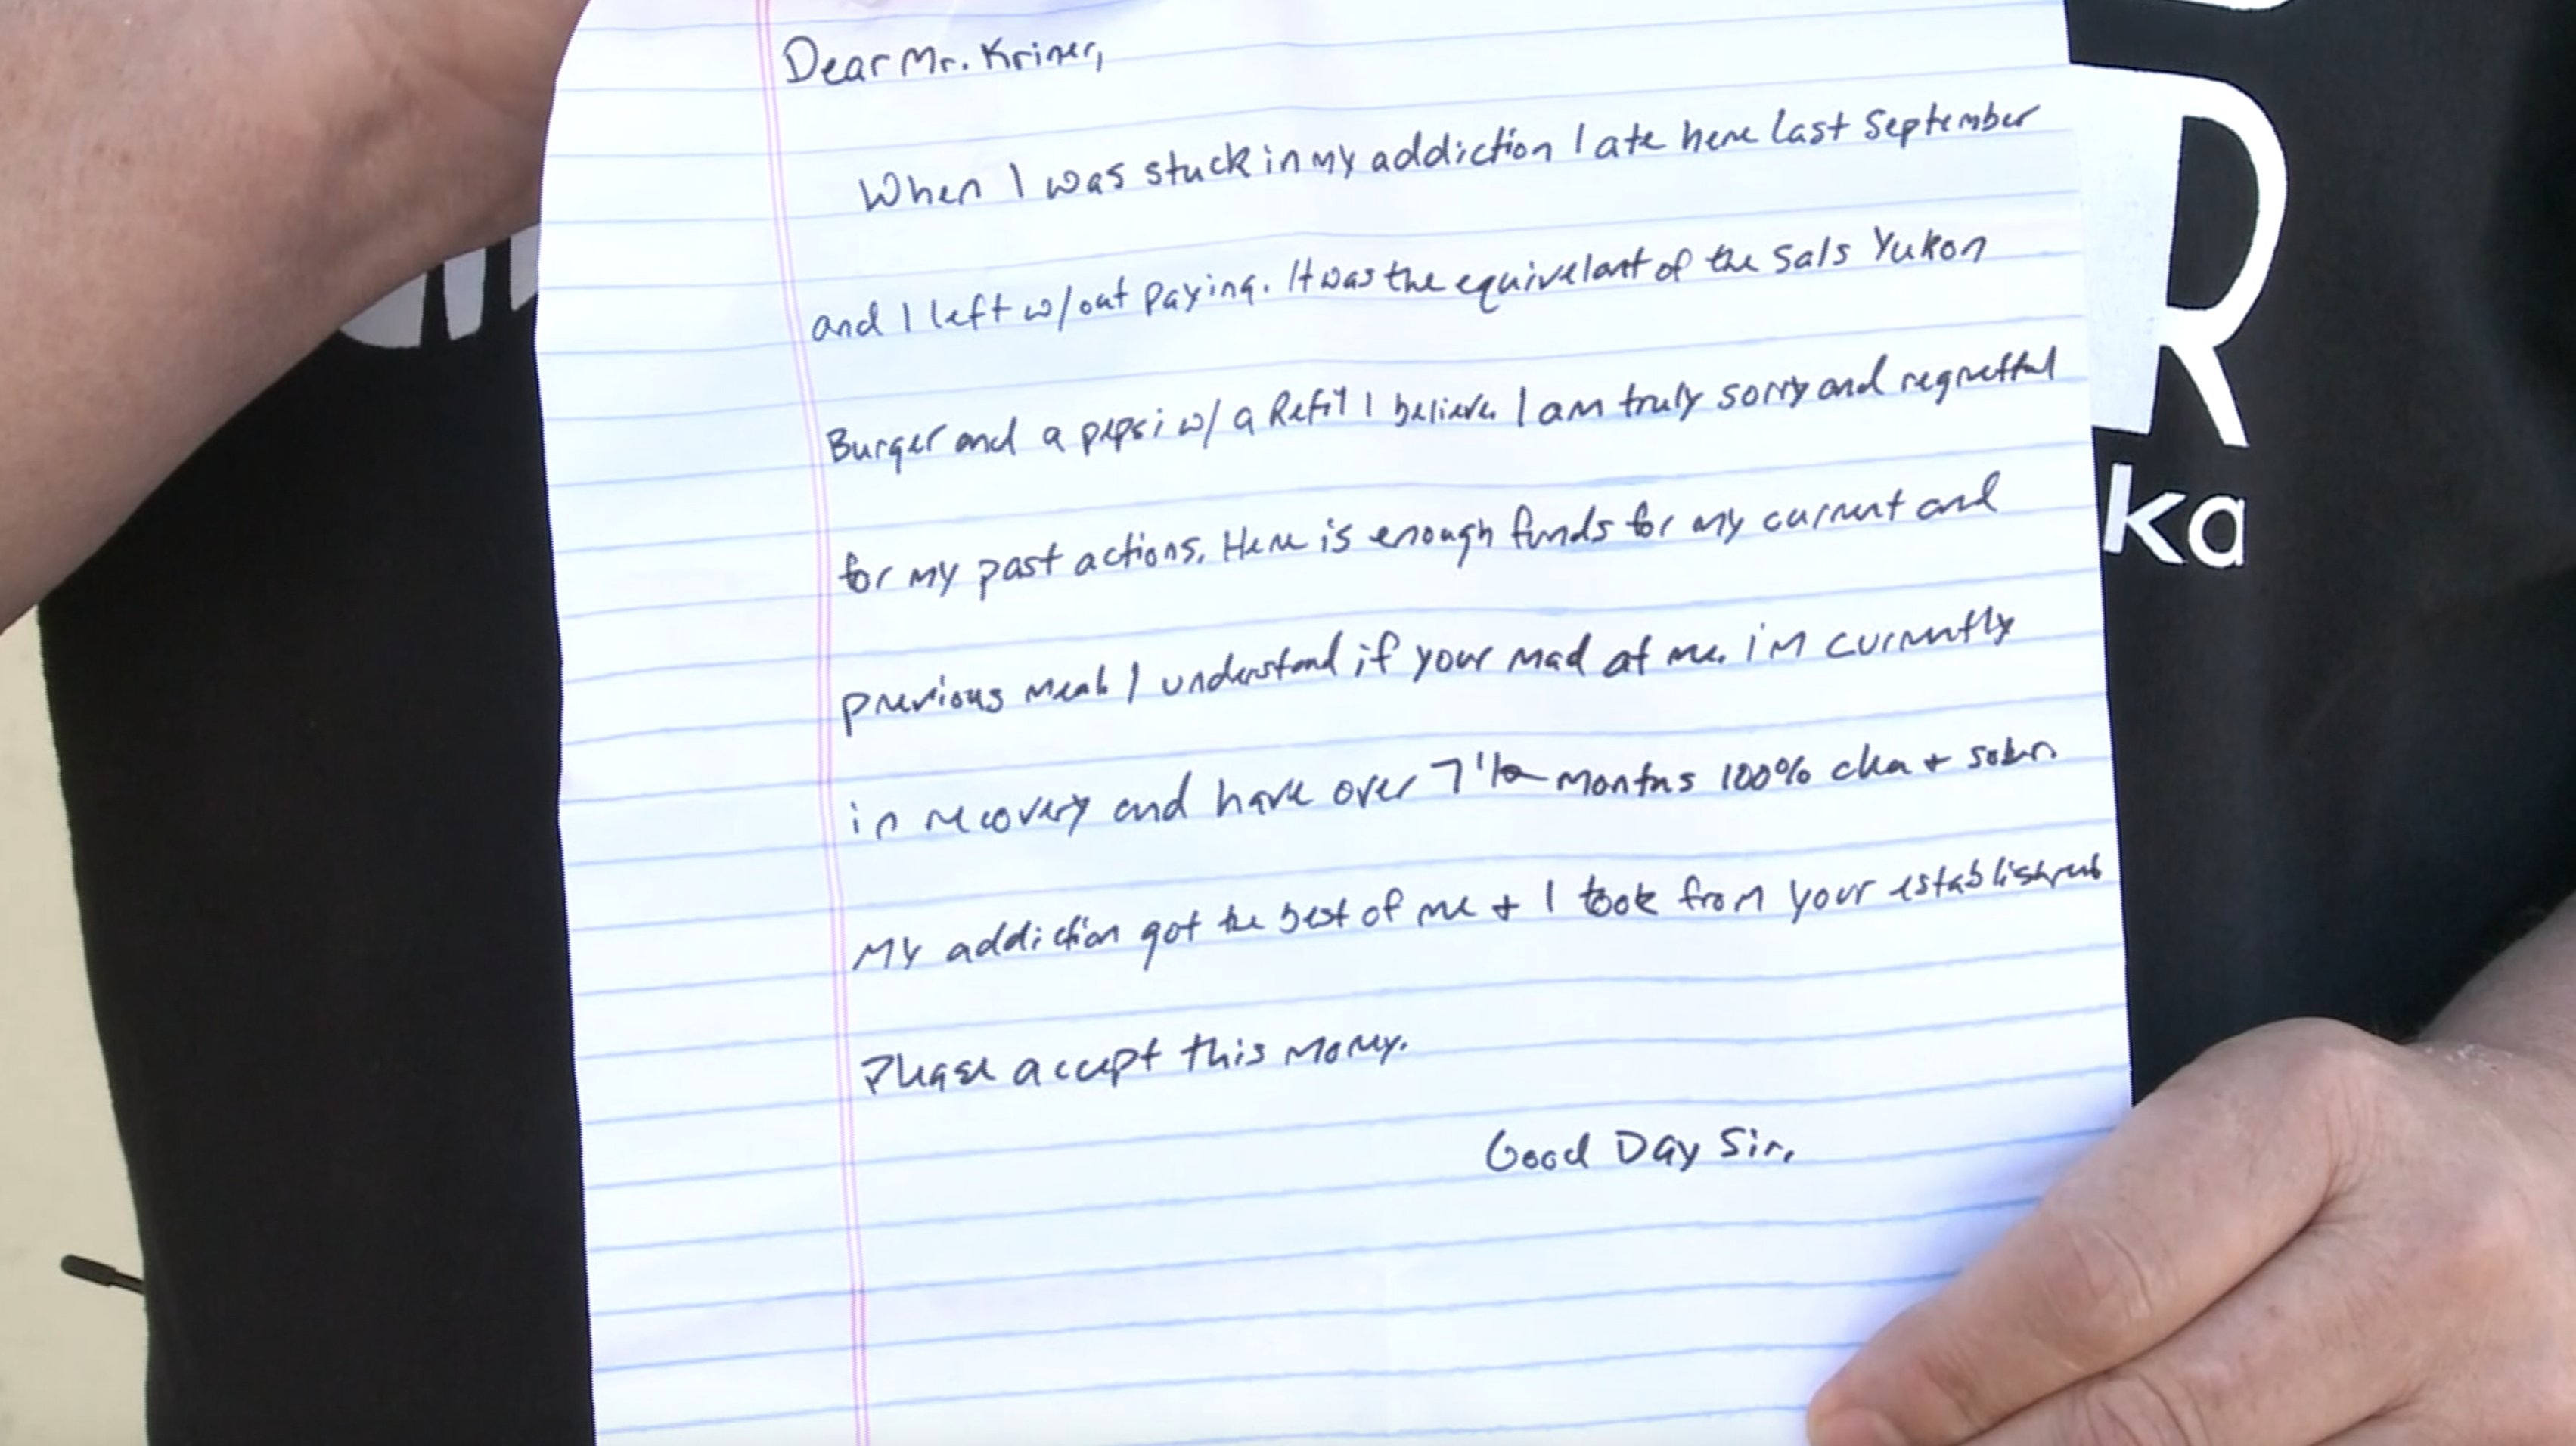 Dear Mr. Kriner,
When I was stuck in my addiction I ate here last September
and I left w/out paying. It was the equivelant of the Sals Yukon
Burger and a pepsi w/ a Refill I believe. I am truly sorry and regretful
for my past actions. Here is enough funds for my current and
previous meal. I understand if your mad at me. i'm currently
in recovery and have over 7 1/2 months 100% clean + sober.
My addiction got the best of me + I took from your establishment
Please accept this money.
Good Day Sir.
R
ka